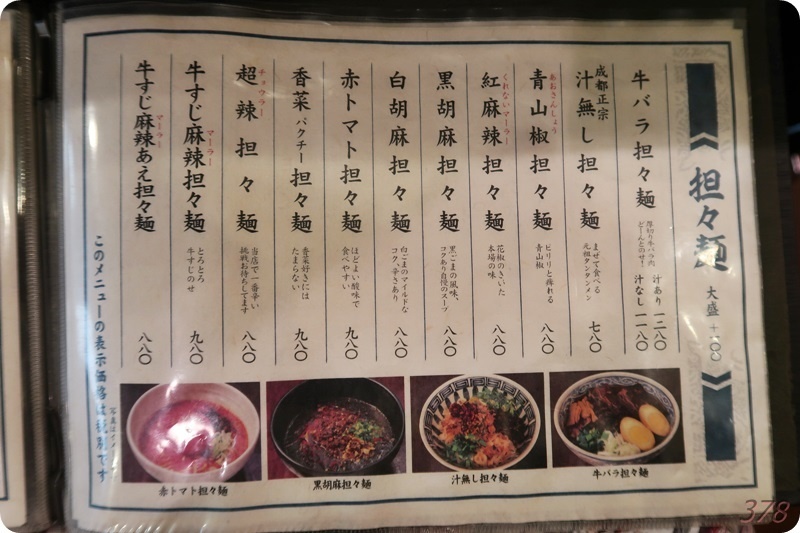 担々麺
大盛 +一〇〇
牛バラ担々麺
厚切り牛バラ肉
どーんとのせ!
汁あり 一二八〇
汁なし 一一八〇
成都正宗
汁無し担々麺
まぜて食べる
元祖タンタンメン
七八〇
青山椒担々麺
あおさんしょう
ピリリと痺れる
青山椒
八八〇
紅麻辣担々麺
くれないマーラー
花椒のきいた
本場の味
八八〇
黒胡麻担々麺
黒ごまの風味、
コクあり自慢のスープ
八八〇
白胡麻担々麺
白ごまのマイルドな
コク、辛さあり
八八〇
赤トマト担々麺
ほどよい酸味で
食べやすい
九八〇
香菜パクチー担々麺
香菜好きには
たまらない
九八〇
超辣担々麺
チョウラー
当店で一番辛い
挑戦お待ちしてます
八八〇
牛すじ麻辣担々麺
マーラー
とろとろ
牛すじのせ
九八〇
牛すじ麻辣あえ担々麺
マーラー
八八〇
このメニューの表示価格は税別です
写真はイメージ
赤トマト担々麺
黒胡麻担々麺
汁無し担々麺
牛バラ担々麺
378